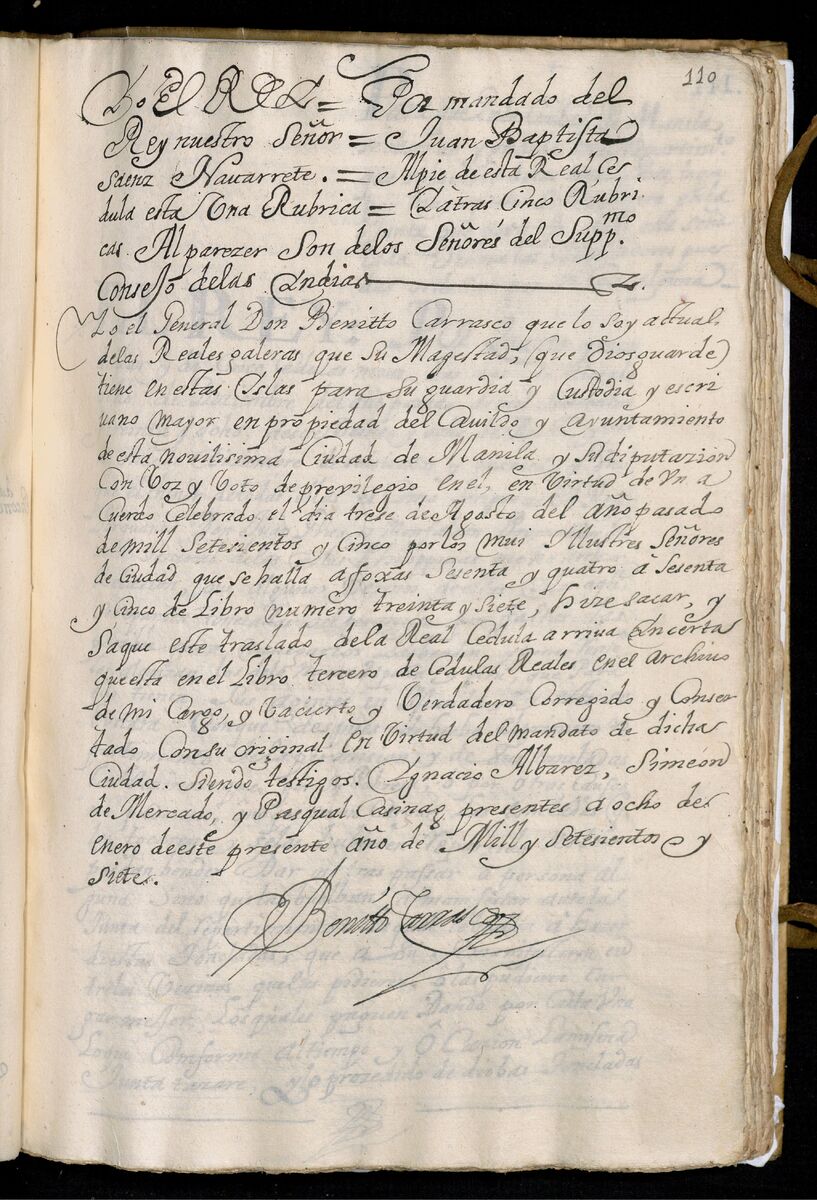 110
Yo El REY = Por mandado del
Rey nuestro Señor = Juan Baptista
saenz Navarrete. = Al pie de esta Real Ce
dula esta Una Rubrica = Y atras Cinco Rubri
cas. Al parezer Son delos Señores del Supp.mo
Consejo delas Yndias
Yo el General Don Benitto Carrasco que lo soy actual
delas Reales galeras que Su Magestad, (que Dios guarde)
tiene en estas Yslas para su guardia y Custodia y escri
uano mayor en propiedad del Cauildo y ayuntamiento
de esta nouilisima Ciudad de Manila y su diputazion
Con Voz y Voto de preuilegio en el, en Virtud de Un a
Cuerdo Celebrado el dia trese de Agosto del año pasado
de mill Setesientos y Cinco por los mui Yllustres Señores
de Ciudad que se halla a foxas Sesenta y quatro a Sesenta
y Cinco de Libro numero treinta y siete, hize sacar, y
Saque este traslado dela Real Cedula arriua Yncerta
que esta en el Libro tercero de Cedulas Reales en el archiuo
de mi Cargo, y Vacierto y Verdadero Corregido y Conser
tado Con su original en Virtud del mandato de dicha
Ciudad. Siendo testigos. Ygnacio Albarez, Simeon
de Mercado, y Pasqual Casinag presentes a ocho de
enero de este presente año de Mill y Setesientos y
Siete.
Benitto Carrasco